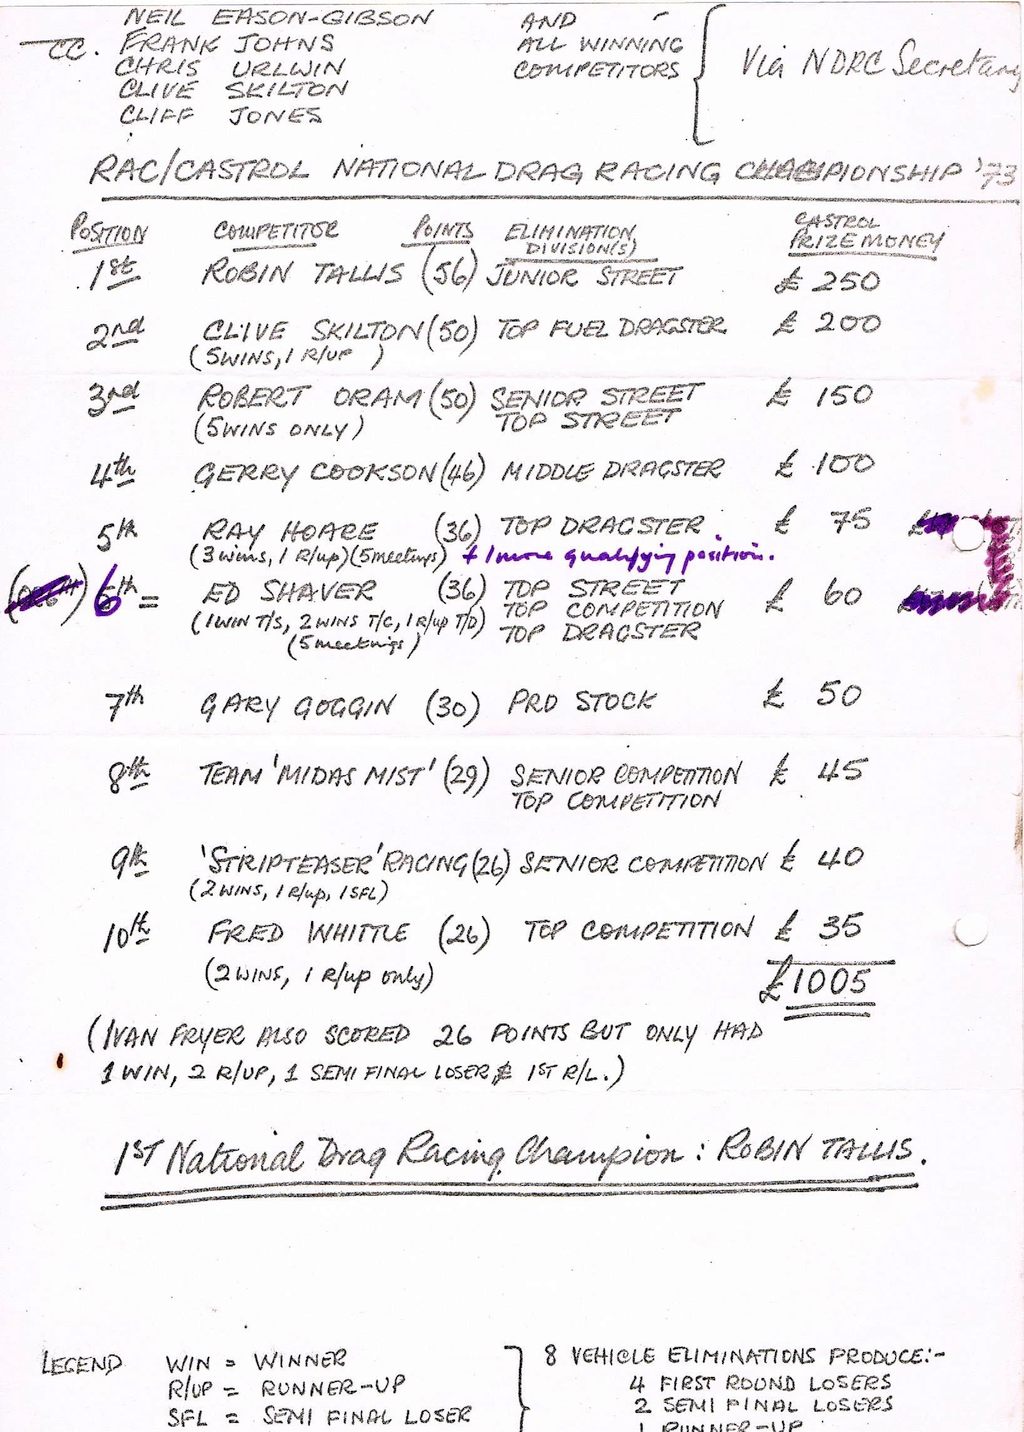 NEIL EASON-GIBSON
CC. FRANK JOHNS
CHRIS URLWIN
CLIVE SKILTON
CLIFF JONES
AND
ALL WINNING
COMPETITORS
Via NDRC Secretary
RAC/CASTROL NATIONAL DRAG RACING CHAMPIONSHIP '73
POSITION COMPETITOR POINTS ELIMINATION DIVISION(S) CASTROL PRIZE MONEY
1st ROBIN TALLIS (56) JUNIOR STREET £ 250
2nd CLIVE SKILTON (50) TOP FUEL DRAGSTER £ 200
(5 WINS, 1 R/UP )
3rd ROBERT ORAM (50) SENIOR STREET £ 150
(5 WINS ONLY) TOP STREET
4th GERRY COOKSON (46) MIDDLE DRAGSTER £ 100
5th RAY HOARE (36) TOP DRAGSTER £ 75
(3 wins, 1 R/up) (5 meetings) + 1 more qualifying position.
6th = ED SHAVER (36) TOP STREET £ 60
(1 WIN T/S, 2 WINS T/C, 1 R/up T/D) TOP COMPETITION
(5 meetings) TOP DRAGSTER
7th GARY GOGGIN (30) PRO STOCK £ 50
8th TEAM 'MIDAS MIST' (29) SENIOR COMPETITION £ 45
TOP COMPETITION
9th 'STRIPTEASER' RACING (26) SENIOR COMPETITION £ 40
(2 WINS, 1 R/up, 1 SFL)
10th FRED WHITTLE (26) TOP COMPETITION £ 35
(2 WINS, 1 R/up only) £1005
(IVAN FRYER ALSO SCORED 26 POINTS BUT ONLY HAD
1 WIN, 2 R/UP, 1 SEMI FINAL LOSER, & 1ST R/L.)
1ST National Drag Racing Champion: ROBIN TALLIS.
LEGEND WIN = WINNER
R/UP = RUNNER-UP
SFL = SEMI FINAL LOSER
8 VEHICLE ELIMINATIONS PRODUCE:-
4 FIRST ROUND LOSERS
2 SEMI FINAL LOSERS
1 RUNNER-UP